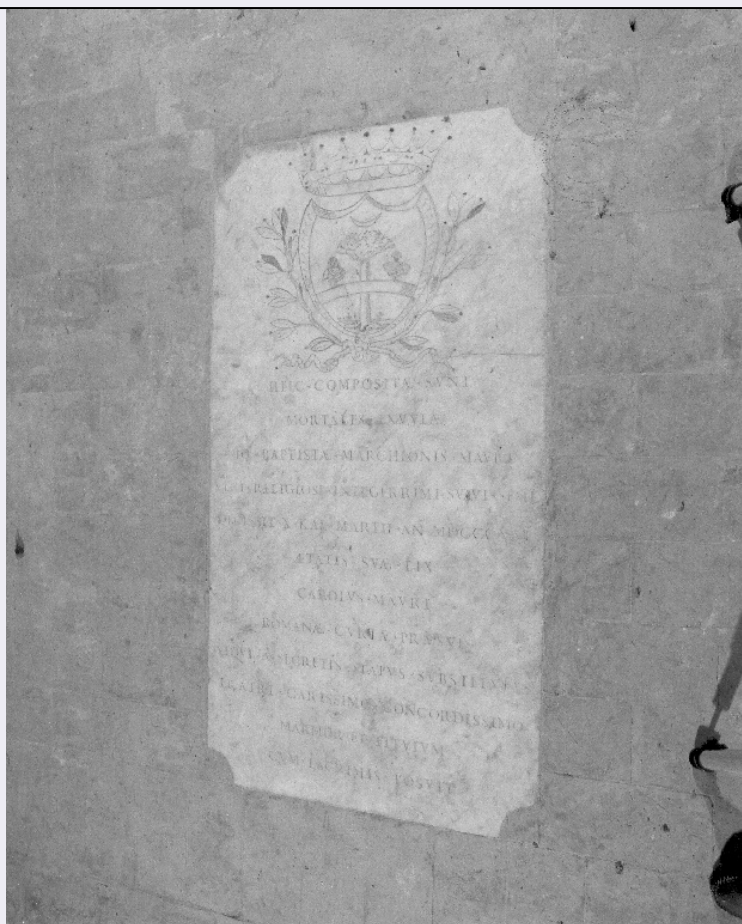 HIC·COMPOSITÆ·SVNT
MORTALES EXVVIÆ
BAPTISTÆ·MARCHIONIS·MAVRI
RELIGIOSI·INTEGERRIMI·SVAVI
X·KAL·MARTII·AN·MDCCC
ÆTATIS·SVÆ·LIX
CAROLVS·MAVRI
ROMANÆ·CVRIÆ·PRÆSVL
A·SECRETIS·STATVS·SVBSTITVTVS
FRATRI·CARISSIMO·CONCORDISSIMO
MARMOR ET TITVLVM
CVM·LACRIMIS·POSVIT